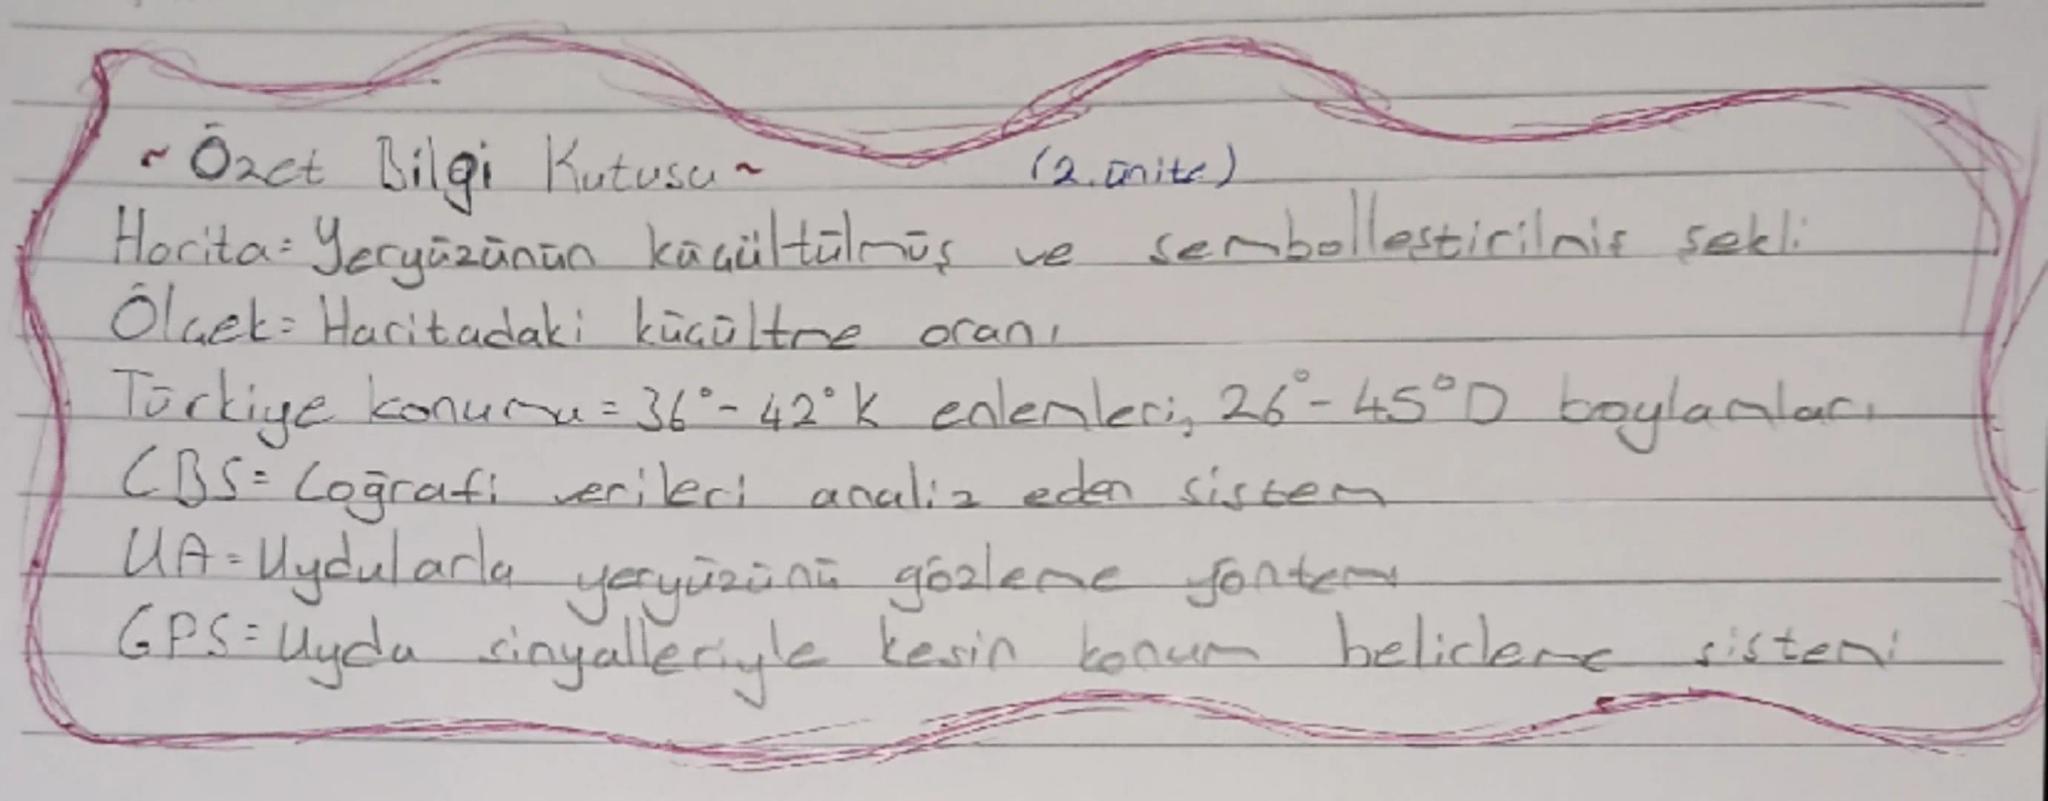 ~ Özet Bilgi Kutusu ~ (2. ünite)
Harita= Yeryüzünün küçültülmüş ve sembolleştirilmiş şekli
Ölçek= Haritadaki küçültme oranı
Türkiye konumu = 36° - 42° K enlemleri, 26° - 45° D boylamları
CBS= Coğrafi verileri analiz eden sistem
UA= Uydularla yeryüzünü gözleme yöntemi
GPS= Uydu sinyalleriyle kesin konum belirleme sistemi